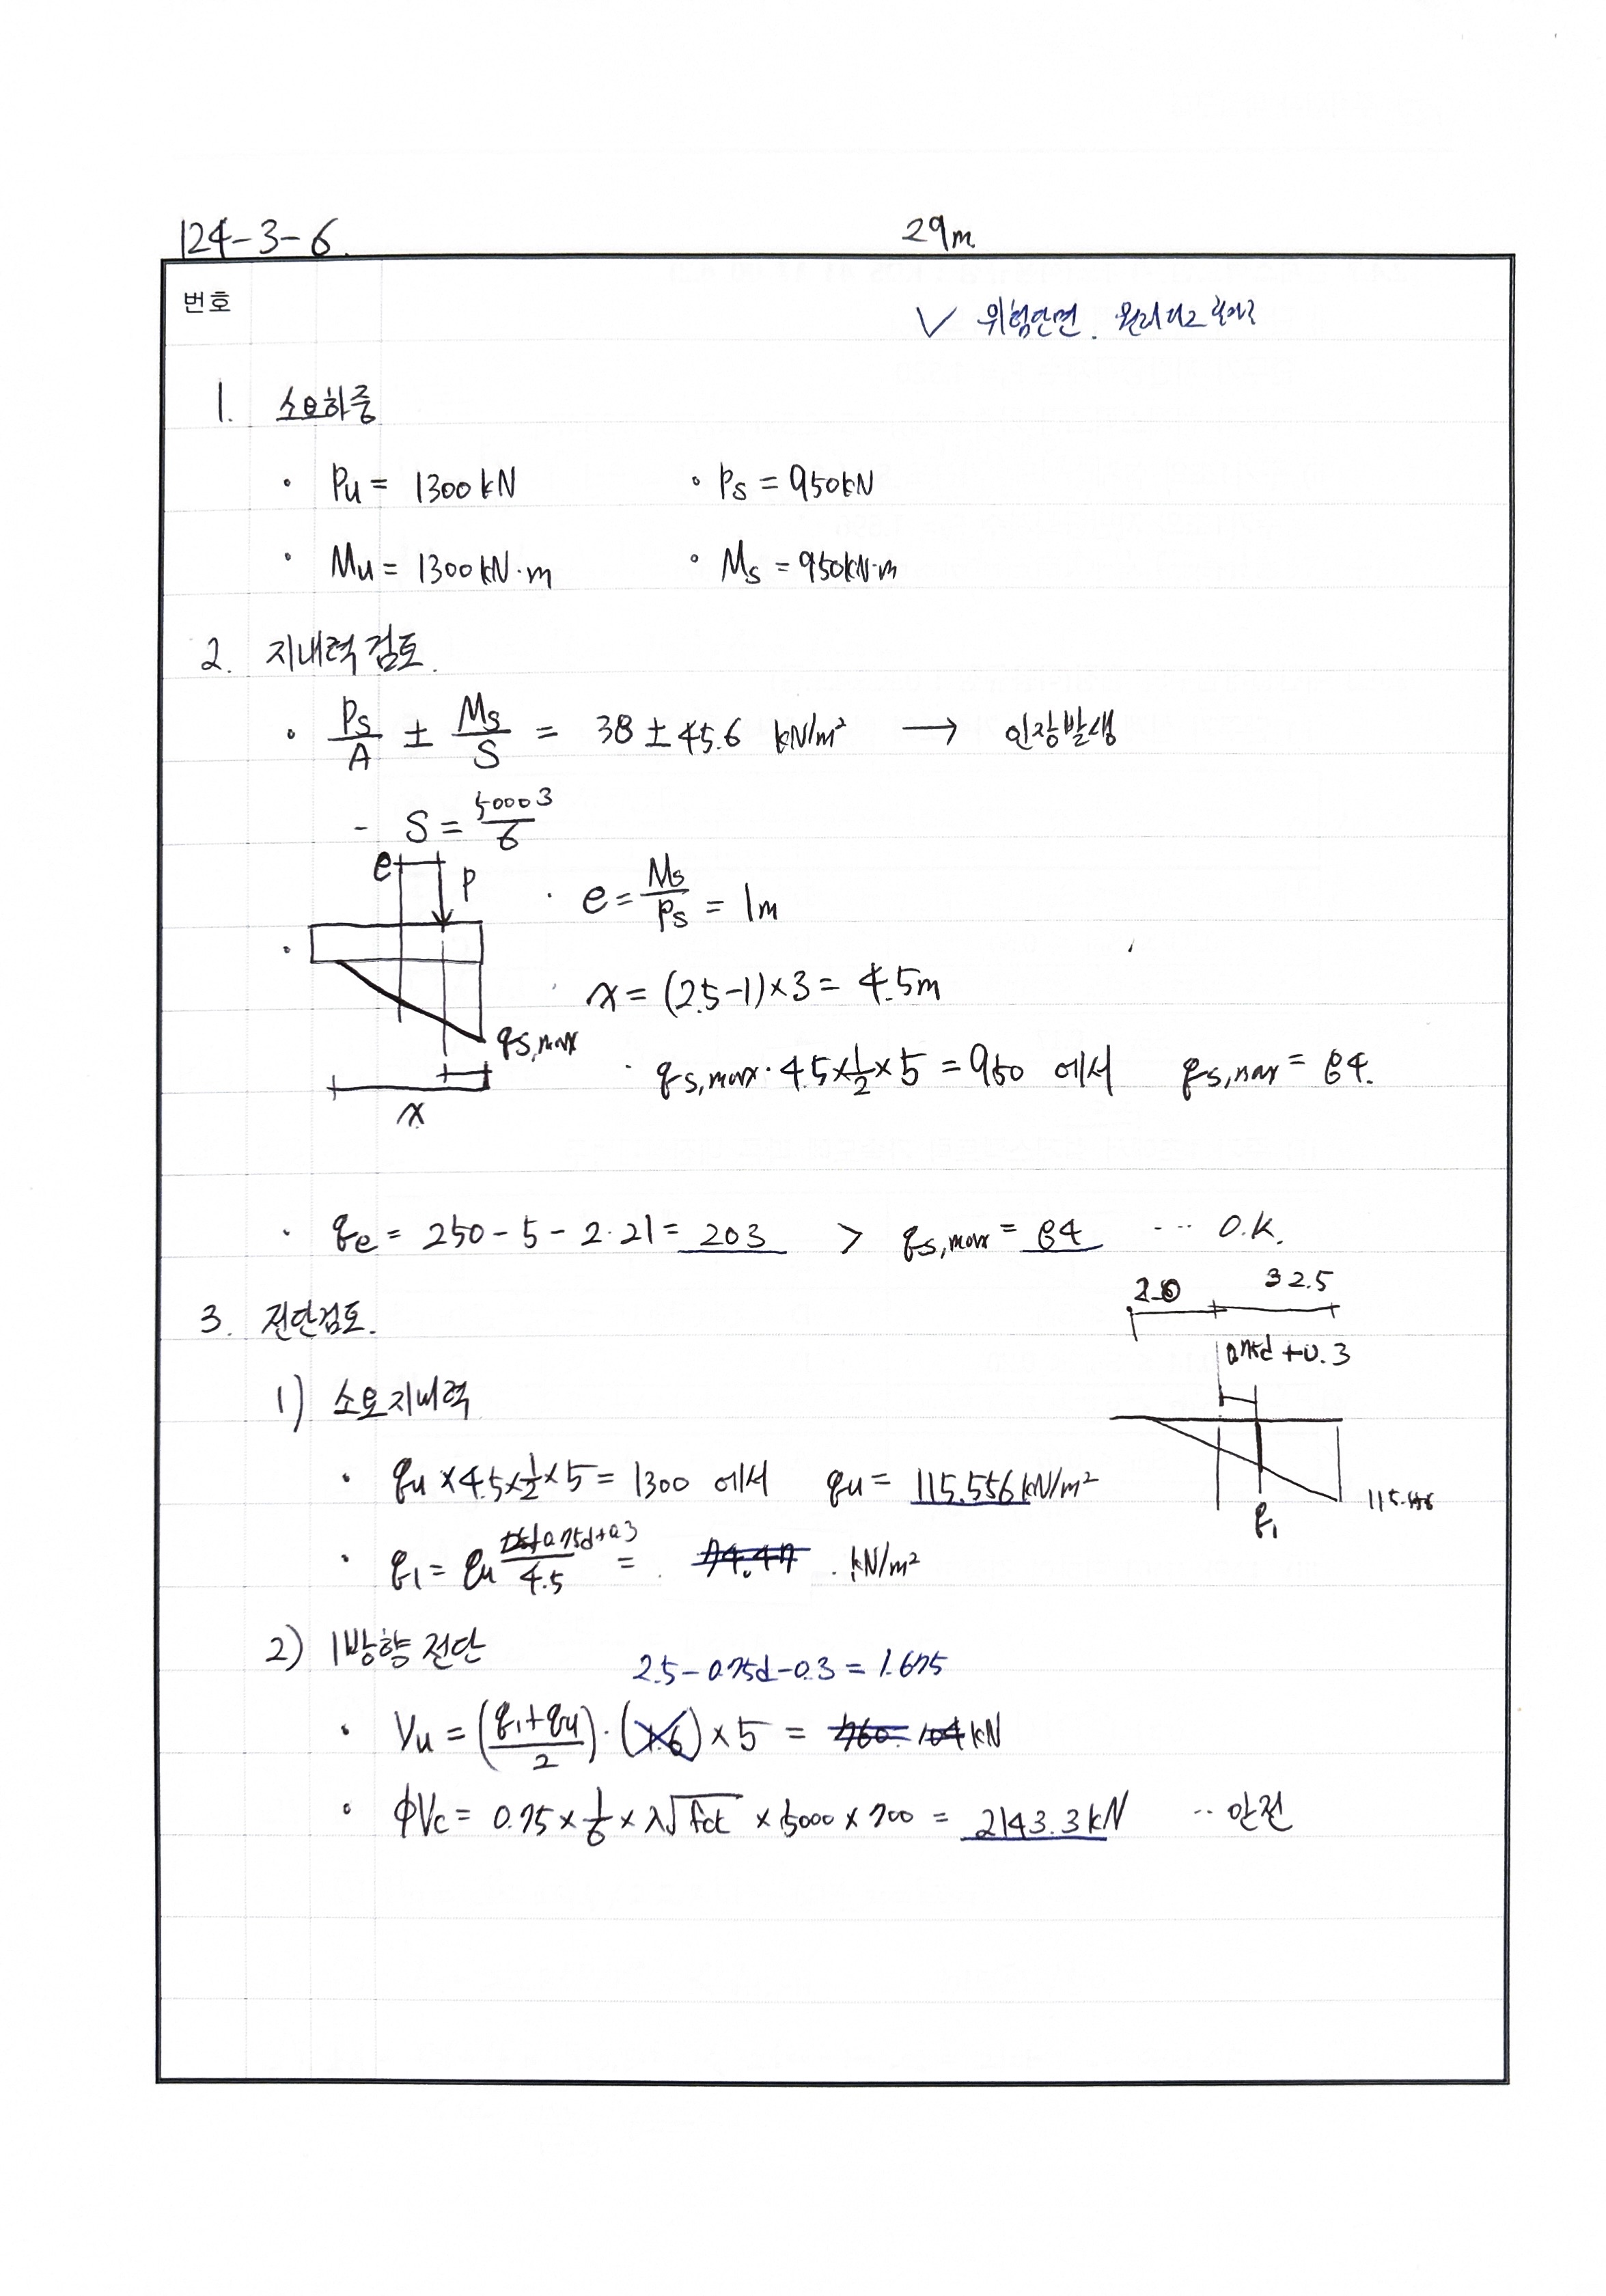 124-3-6.
29m
번호
✓ 위험단면.
1. 소요하중
· Pu = 1300kN · Ps = 950kN
· Mu = 1300kN·m · Ms = 950kN·m
2. 지내력 검토.
· Ps/A ± Ms/S = 38 ± 45.6 kN/m² → 인장발생
- S = 5000³/6
e P
· e = Ms/Ps = 1m
x = (2.5-1)×3 = 4.5m
qs,max
· qs,max · 4.5×1/2×5 = 950 에서 qs,max = 84.
x
· qe = 250 - 5 - 2·21 = 203 > qs,max = 84 ··· O.K.
3. 전단검토.
2.0 2.5
0.75d + 0.3
1) 소요지내력
· qu × 4.5×1/2×5 = 1300 에서 qu = 115.556kN/m²
q1
· q1 = qu 0.75d+0.3/4.5 = 74.47 kN/m²
2) 1방향 전단
2.5 - 0.75d - 0.3 = 1.675
· Vu = (q1+qu/2)·(1.6)×5 = kN
· ΦVc = 0.75 × 1/6 × λ√fck × 5000 × 700 = 2143.3kN ·· 안전